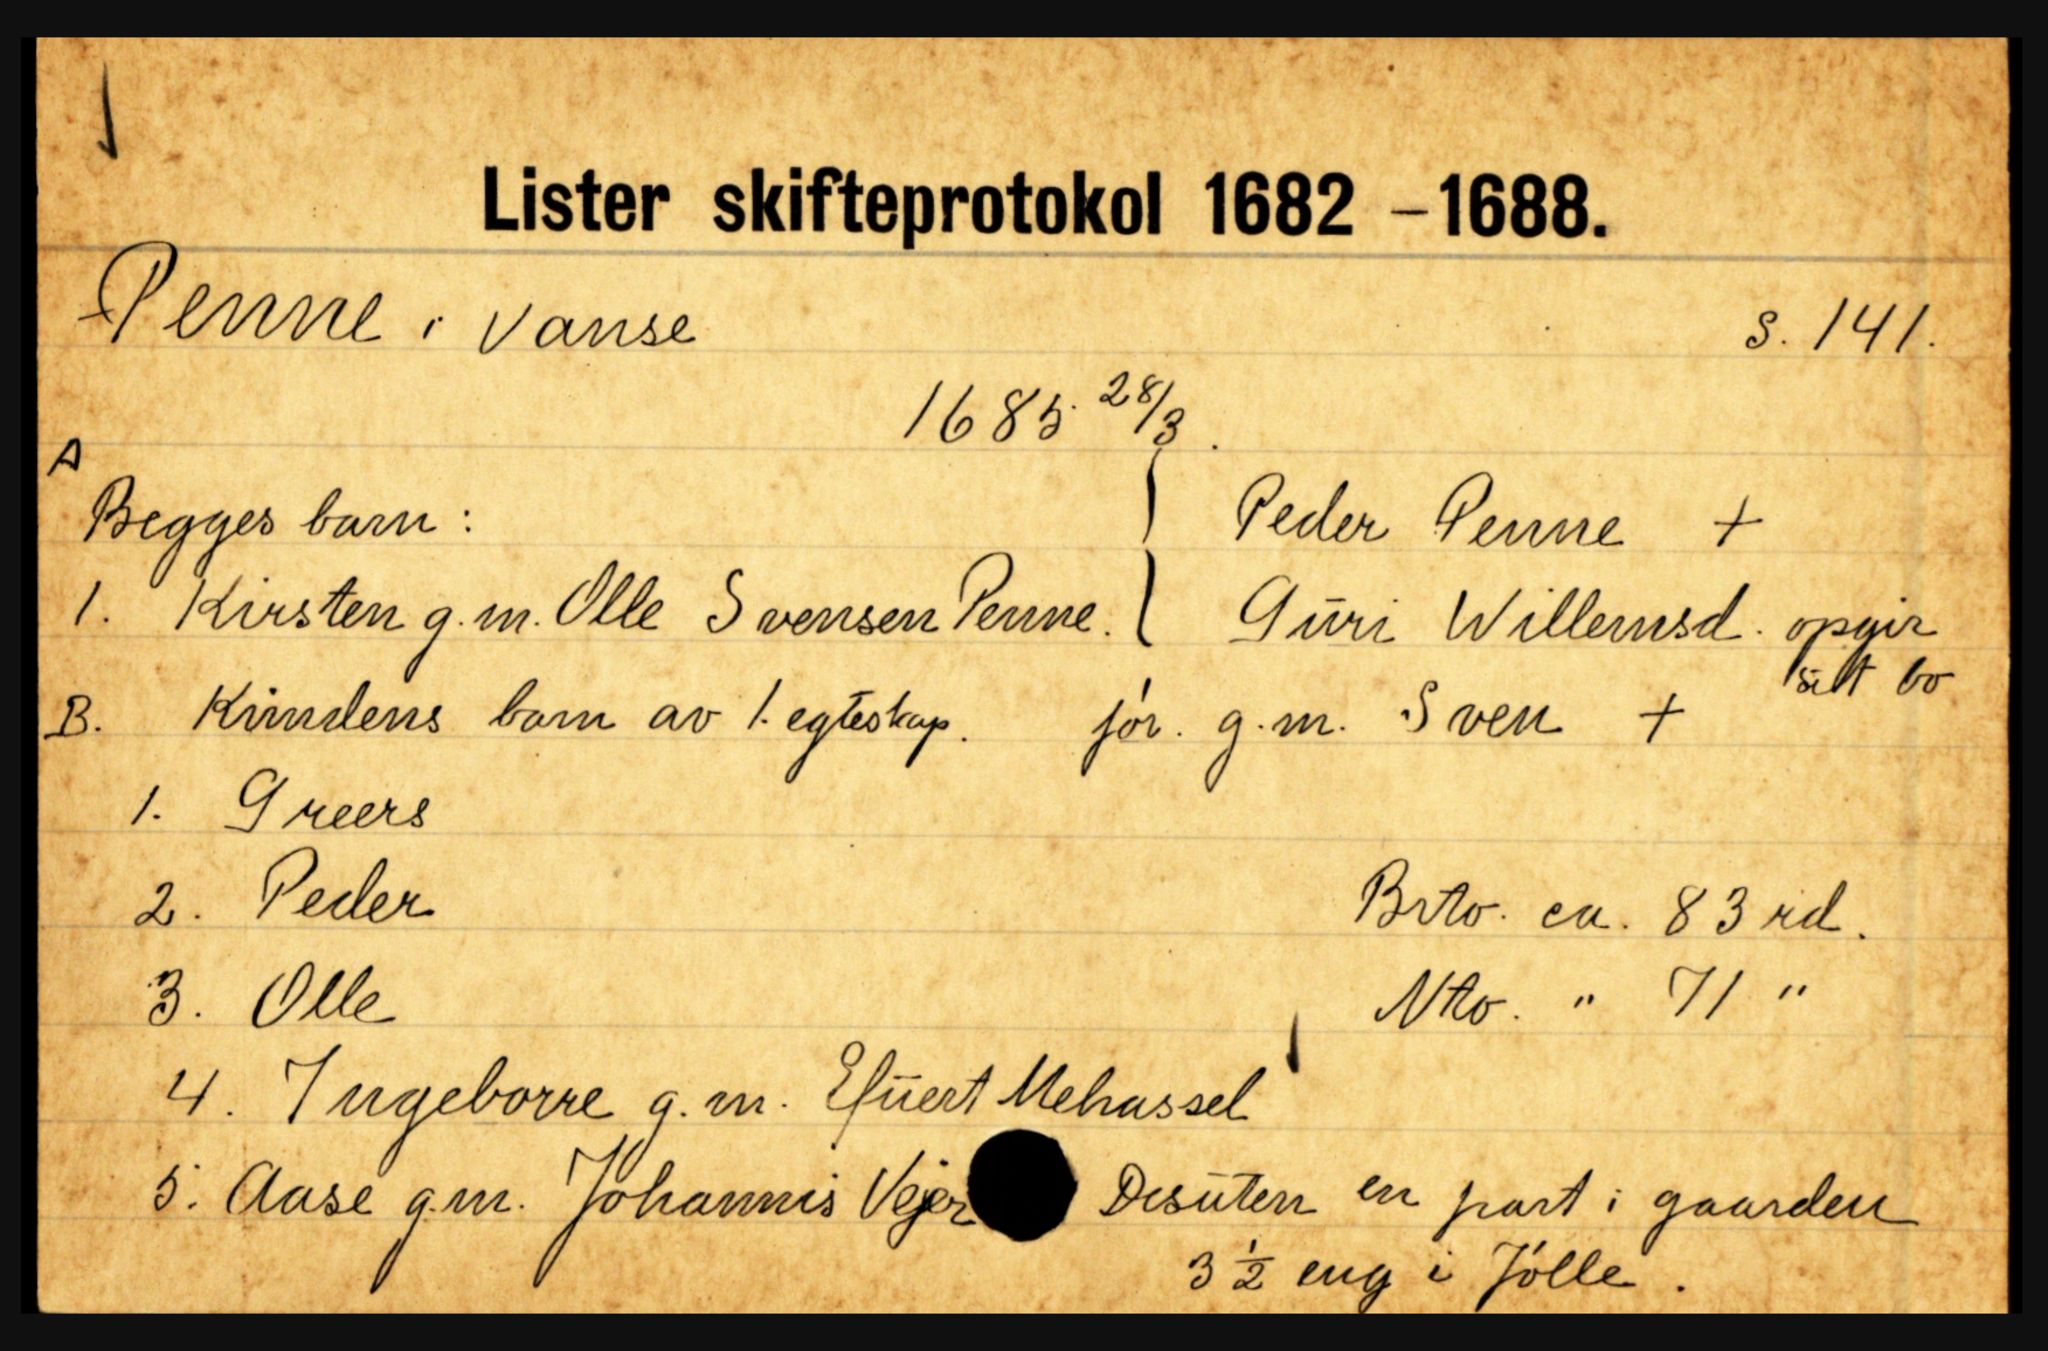 Lister skifteprotokol 1682 – 1688.
Penne i Vanse s. 141.
1685 28/3.
A
Begges barn: Peder Penne +
1. Kirsten g.m. Olle Svensen Penne. Guri Willemsd. opgir
sit bo
B. Kvindens barn av 1. egteskap. før. g.m. Sven +
1. Greers
2. Peder Brto. ca. 83 rd.
3. Olle Nto. " 71 "
4. Ingeborre g.m. Efuert Mehassel
5. Aase g.m. Johannis Vejer Desuten en part i gaarden
3 1/2 eng i Jølle.